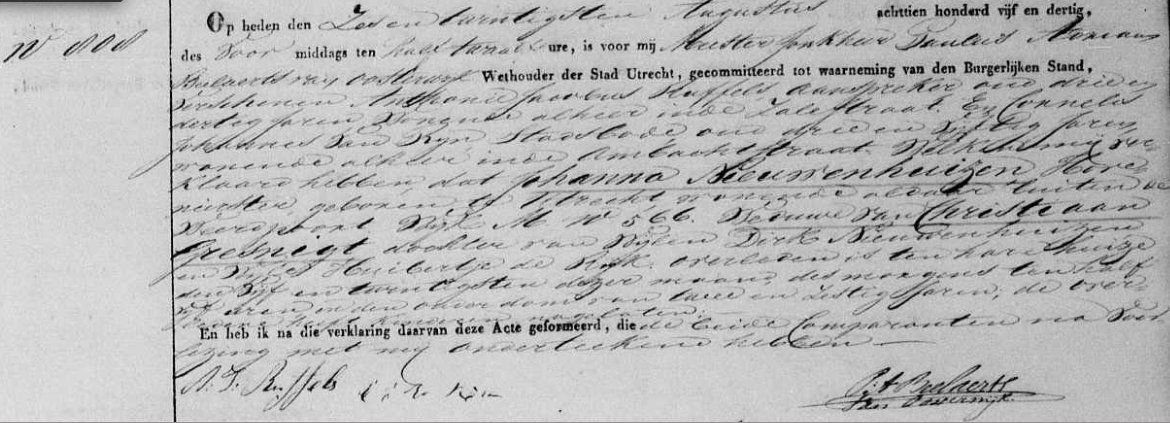 N° 808
Op heden den Zes en twintigsten Augustus achttien honderd vijf en dertig,
des Voor middags ten half twaalf ure, is voor mij Meester Jonkheer Paulus Adriaan
Beelaerts van Oosterwyk Wethouder der Stad Utrecht, gecommitteerd tot waarneming van den Burgerlijken Stand,
verschenen Anthonie Jacobus Ruffels aanspreker oud drie en
dertig Jaren wonende alhier inde Zalestraat. En Cornelis
Johannes van Ryn Stadsbode oud drie en Jaren,
wonende alhier inde Ambachtstraat Welke mij ver-
klaard hebben dat Johanna Nieuwenhuizen
geboren te Utrecht wonende aldaar buiten de
Weerdpoort Wyk M N° 566. Weduwe van Christiaan
Gresnigt dochter van Wylen Dirk Nieuwenhuizen
en Wylen Huibertje de Ryk. overleden is ten haren huize
den Vyf en twintigsten dezer maand, des morgens ten half
vyf uren in den ouderdom van twee en Zestig Jaren, de over-
En heb ik na die verklaring daarvan deze Acte geformeerd, die de beide Comparanten na Voor
lezing met my onderteekend hebben
A: J: Ruffels
P: A Beelaerts
van Oosterwijk